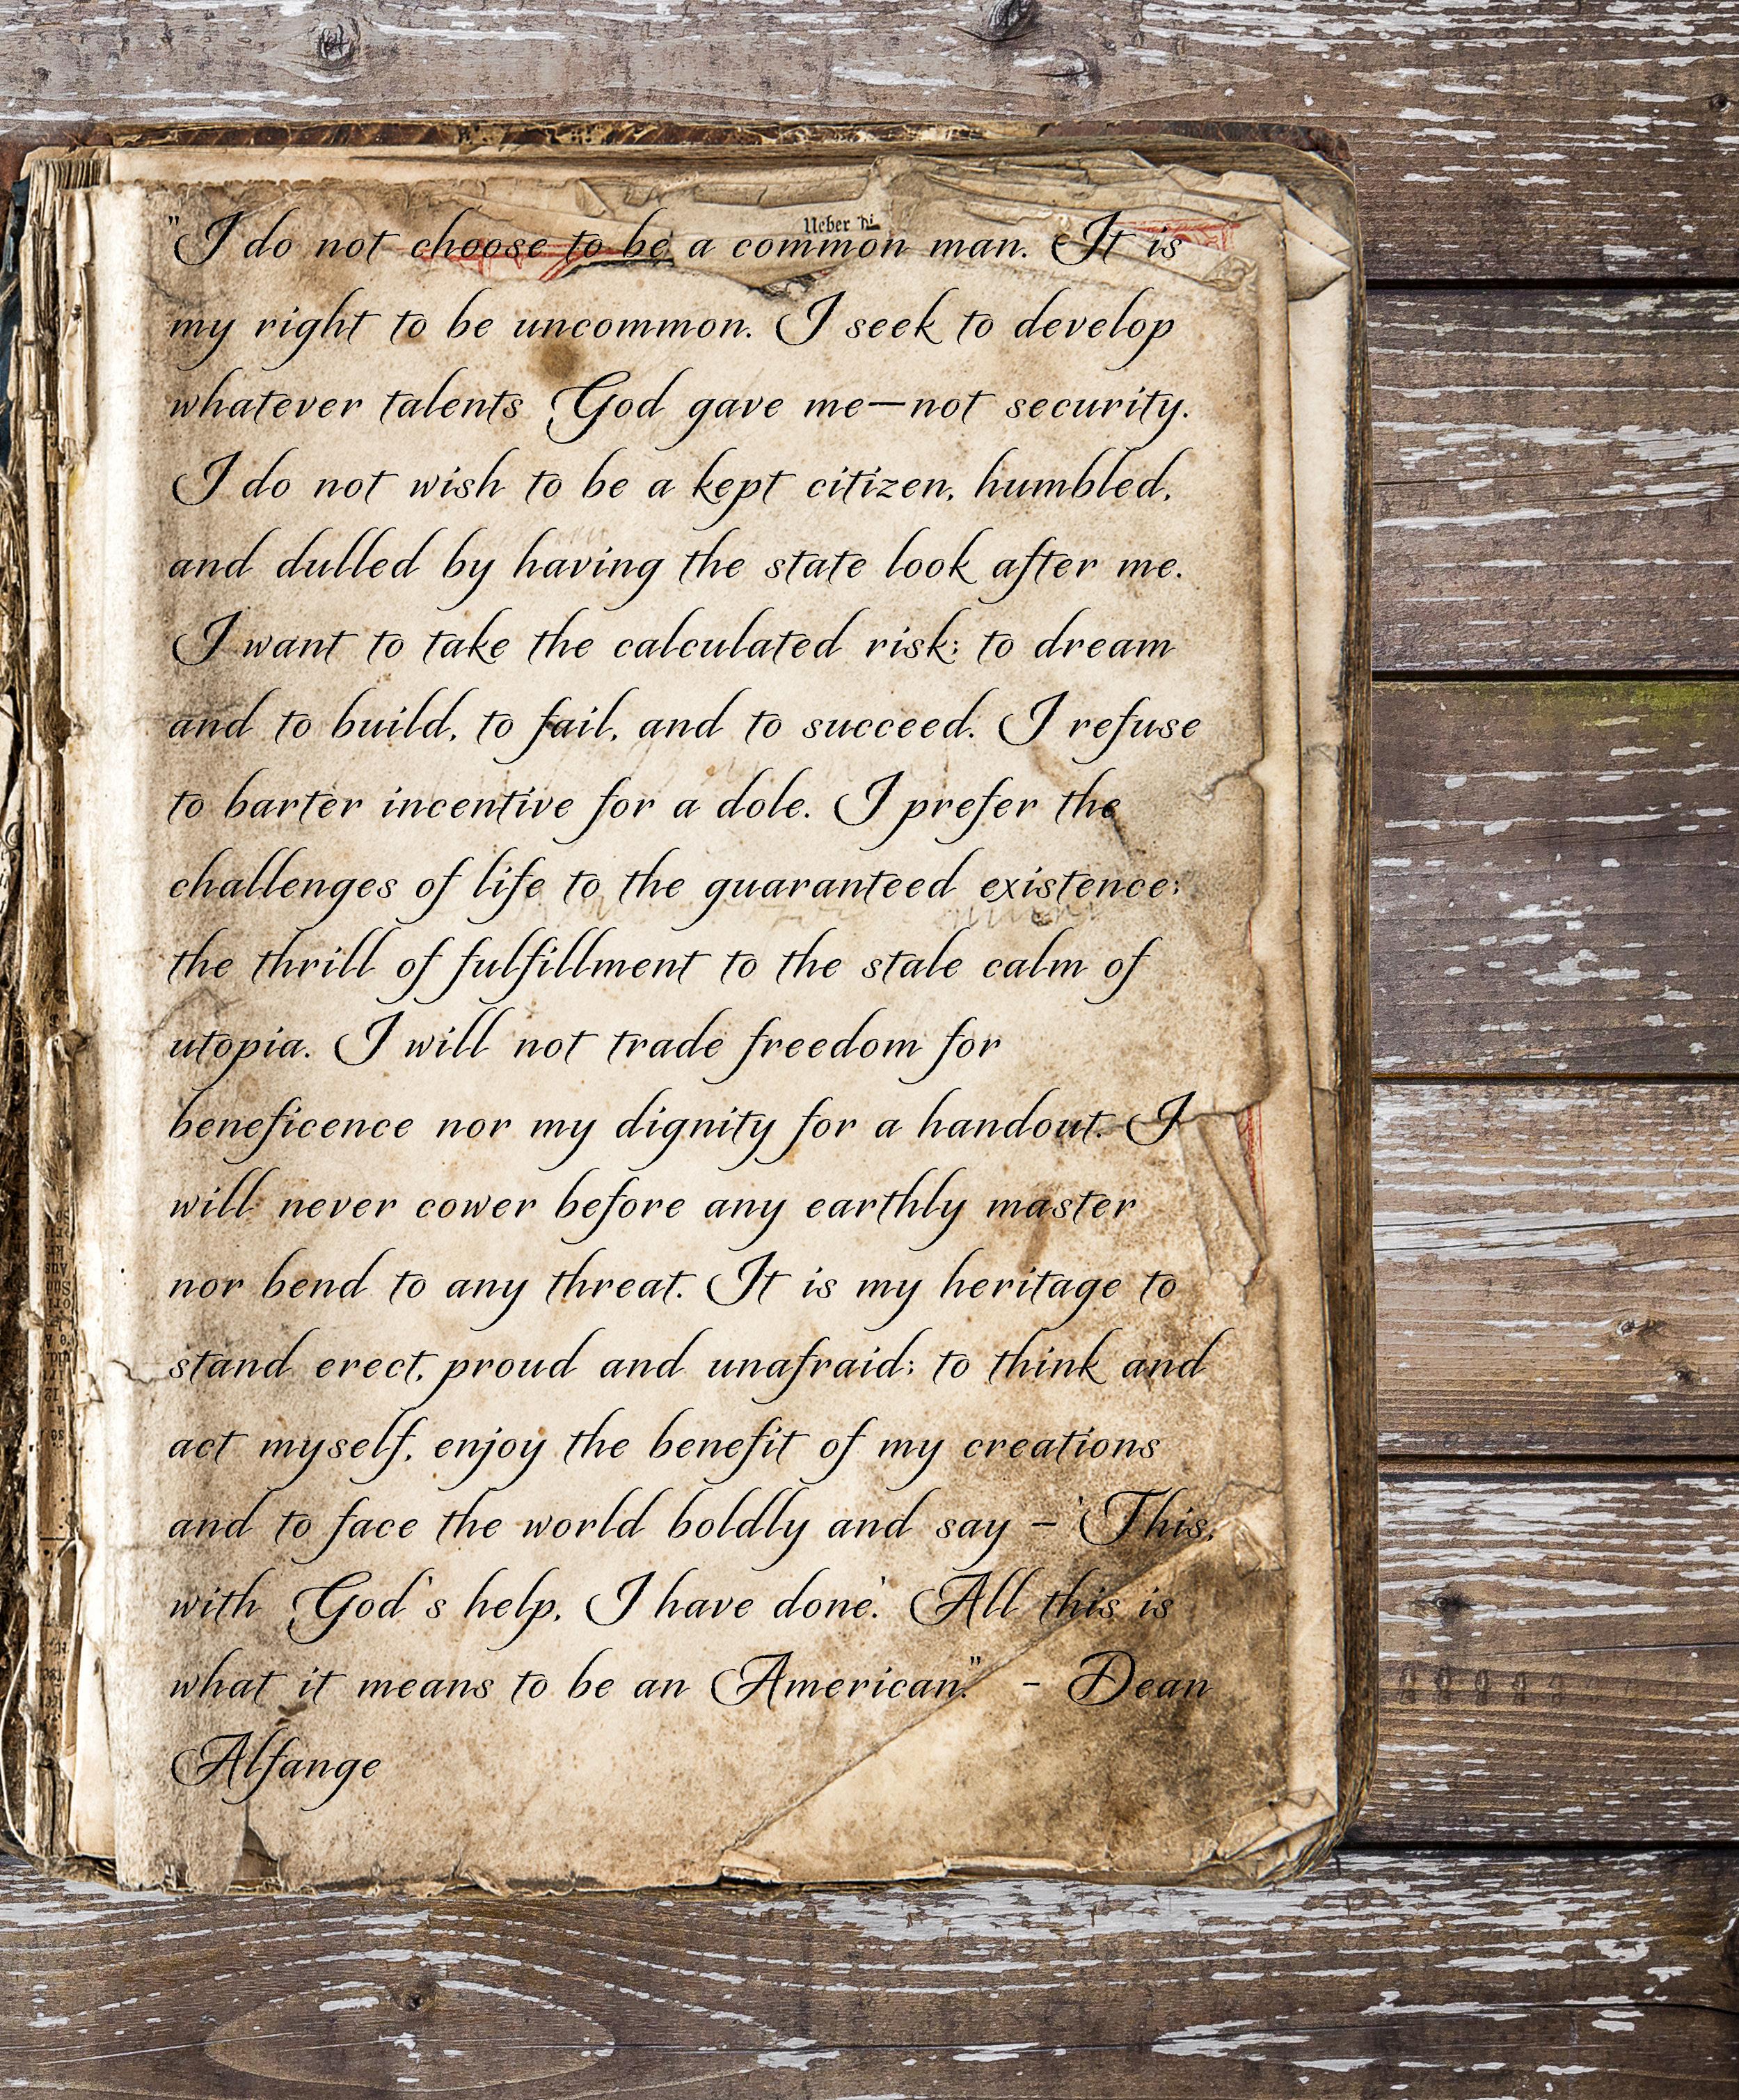 "I do not choose to be a common man. It is
my right to be uncommon. I seek to develop
whatever talents God gave me—not security.
I do not wish to be a kept citizen, humbled,
and dulled by having the state look after me.
I want to take the calculated risk; to dream
and to build, to fail, and to succeed. I refuse
to barter incentive for a dole. I prefer the
challenges of life to the guaranteed existence;
the thrill of fulfillment to the stale calm of
utopia. I will not trade freedom for
beneficence nor my dignity for a handout. I
will never cower before any earthly master
nor bend to any threat. It is my heritage to
stand erect, proud and unafraid; to think and
act myself, enjoy the benefit of my creations
and to face the world boldly and say – 'This,
with God's help, I have done.' All this is
what it means to be an American." - Dean
Alfange
Ueber